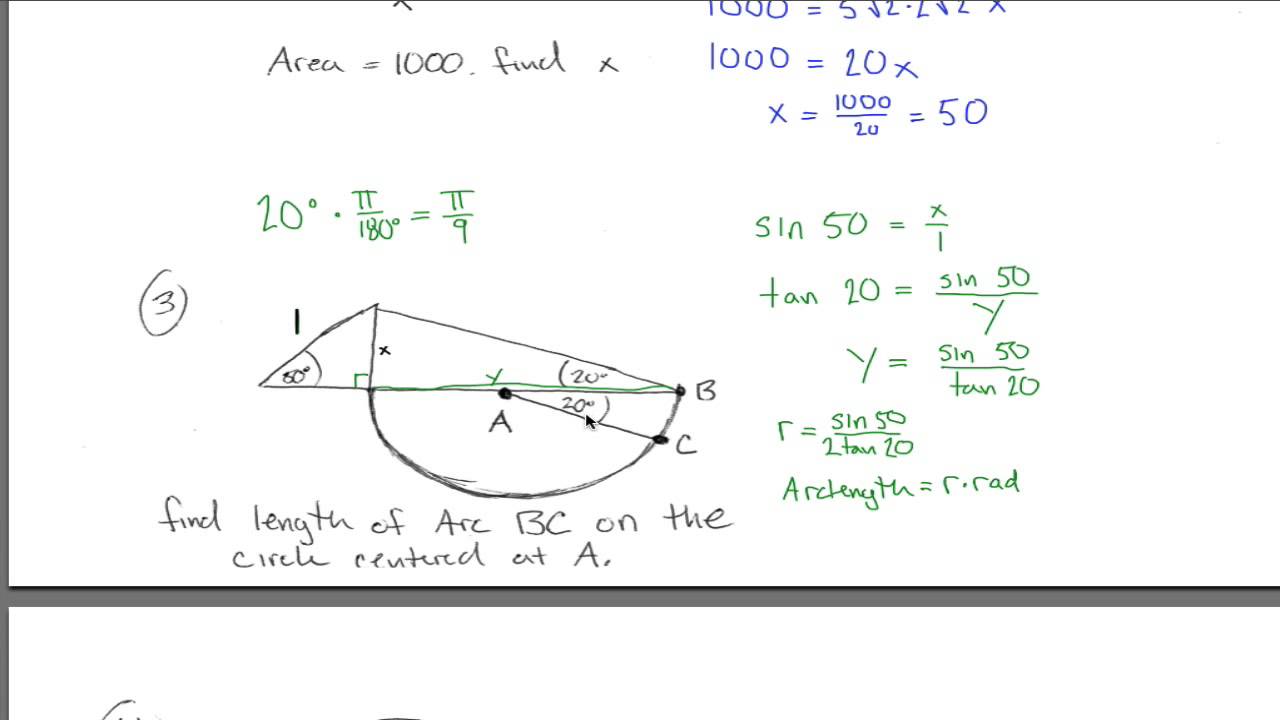 1000 = 5√2·2√2 x
Area = 1000. find x
1000 = 20x
x = 1000/20 = 50
20° · π/180° = π/9
sin 50 = x/1
tan 20 = sin 50/y
y = sin 50/tan 20
r = sin 50/2tan 20
Arclength = r·rad
3
1
x
50°
y
20°
B
20°
A
C
find length of Arc BC on the
circle centered at A.